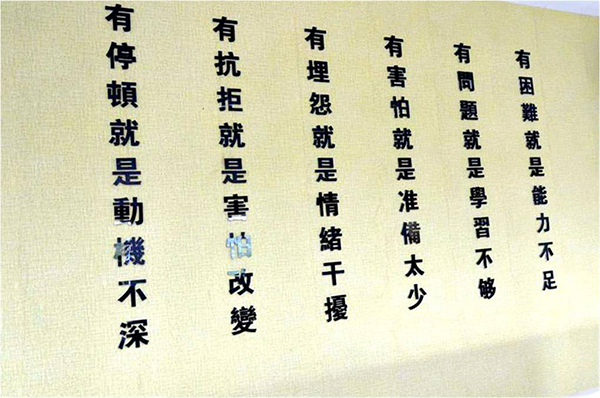 有困難就是能力不足
有問題就是學習不够
有害怕就是准備太少
有埋怨就是情緒干擾
有抗拒就是害怕改變
有停頓就是動機不深